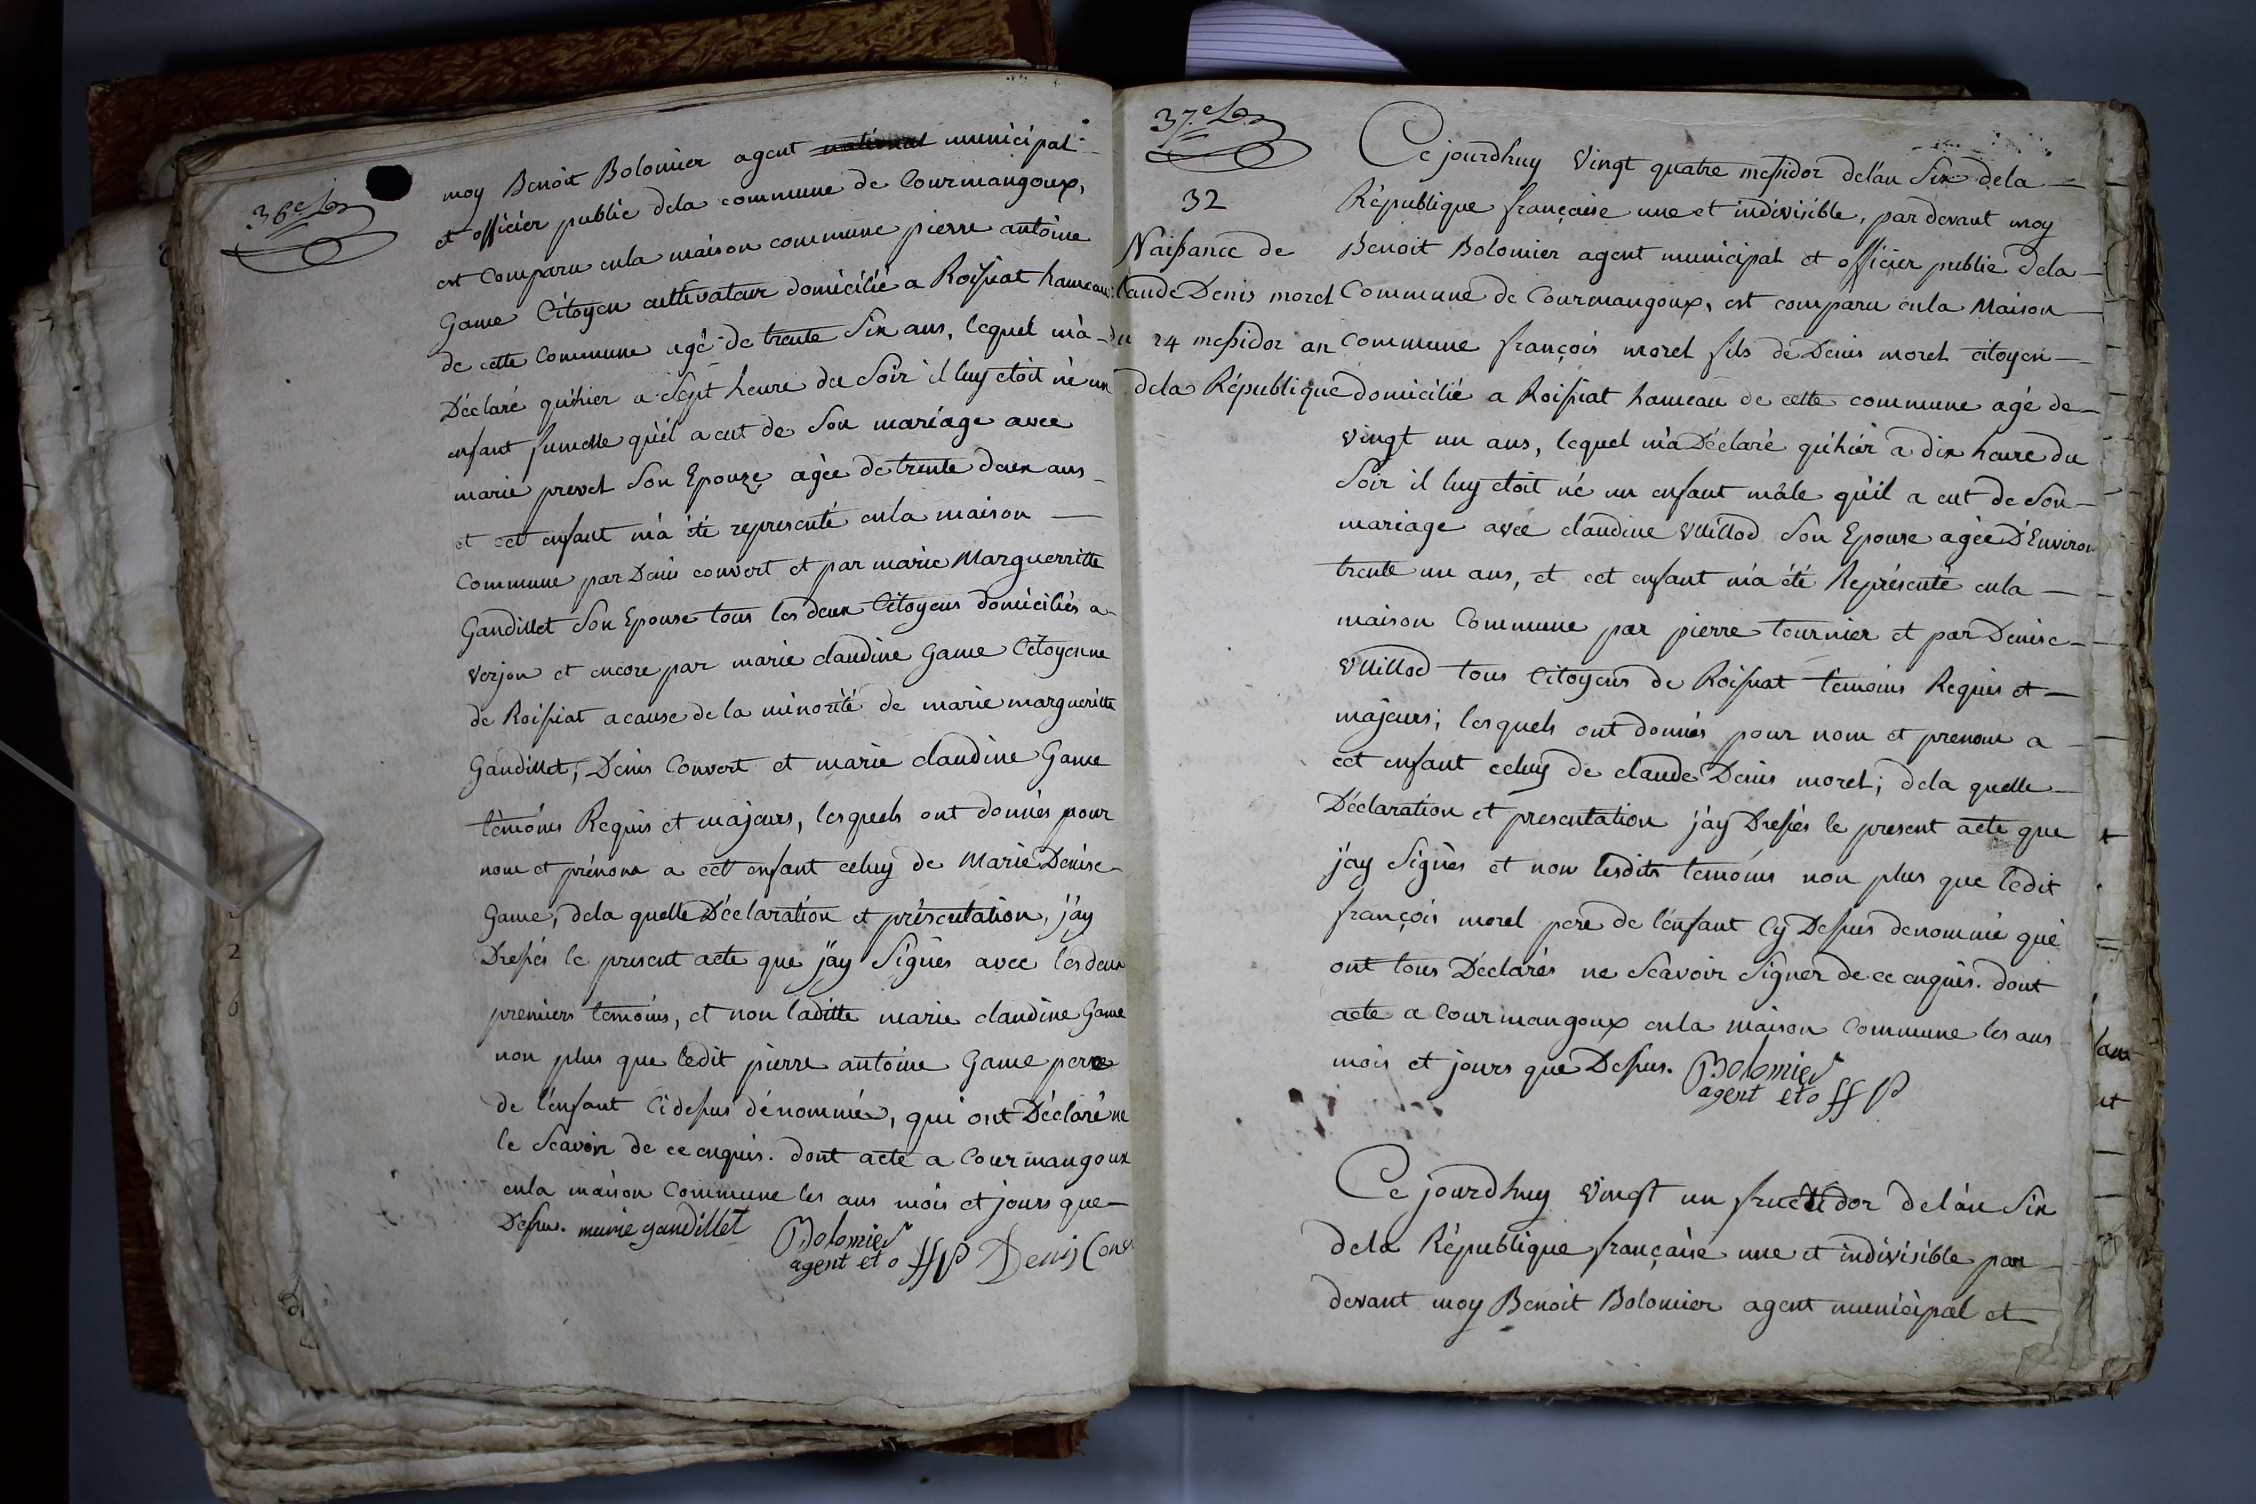 36e
moy Benoit Bolomier agent national municipal
et officier public dela commune de Courmangoux,
est Comparu enla maison commune pierre antoine
Game Citoyen cultivateur domicilié a Roissiat hameau
de cette Commune agé de trente Six ans, lequel m'a
Déclaré qu'hier a Sept heure du Soir il luy etoit né un
enfant fumelle qu'il a eut de Son mariage avec
marie prevet Son Epouze agée de trente deux ans
et cet enfant m'a été representé enla maison
Commune par Denis convert et par marie Marguerritte
Gandillet Son Epouse tous les deux Citoyens domiciliés a
Verjon et encore par marie claudine Game Citoyenne
de Roissiat a cause de la minorité de marie margueritte
Gandillet, Denis Convert et marie claudine Game
témoins Requis et majeurs, lesquels ont donnés pour
nom et prénom a cet enfant celuy de Marie Denise
Game, dela quelle Déclaration et présentation, j'ay
Dressés le present acte que j'ay Signés avec les deux
premiers temoins, et non laditte marie claudine Game
non plus que ledit pierre antoine Game pere
de l'enfant Cidessus dénommée, qui ont Déclaré ne
le Scavoir de ce enquis. Dont acte a Courmangoux
enla maison Commune les ans mois et jours que
Dessus. marie gandillet
Bolomier
agent et off P Denis Conv
37e
32
Naissance de
Claude Denis morel
du 24 messidor an
dela République
Ce jourdhuy Vingt quatre messidor delan Six dela
République française une et indivisible, pardevant moy
Benoit Bolomier agent municipal et officier public dela
Commune de Courmangoux, est comparu enla Maison
Commune françois morel fils de Denis morel citoyen
domicilié a Roissiat hameau de cette commune agé de
vingt un ans, lequel m'a Déclaré qu'hier a dix heure du
Soir il luy etoit né un enfant mâle qu'il a eut de Son
mariage avec claudine Vuillod Son Epouse agée D'Environ
trente un ans, et cet enfant m'a été Représenté enla
maison Commune par pierre tournier et par Denise
Vuillod tous Citoyens de Roissiat temoins Requis et
majeurs; lesquels ont donnés pour nom et prenom a
cet enfant celuy de claude Denis morel; dela quelle
Déclaration et presentation j'ay Dressés le present acte que
j'ay Signés et non lesdits temoins non plus que ledit
françois morel pere de l'enfant Cy Dessus denommé qui
ont tous Déclarés ne Scavoir Signer de ce enquis. Dont
acte a Courmangoux enla maison Commune les ans
mois et jours que Dessus. Bolomier
agent et off P
Ce jourdhuy Vingt un fructidor delan Six
dela République française une et indivisible par
devant moy Benoit Bolomier agent municipal et